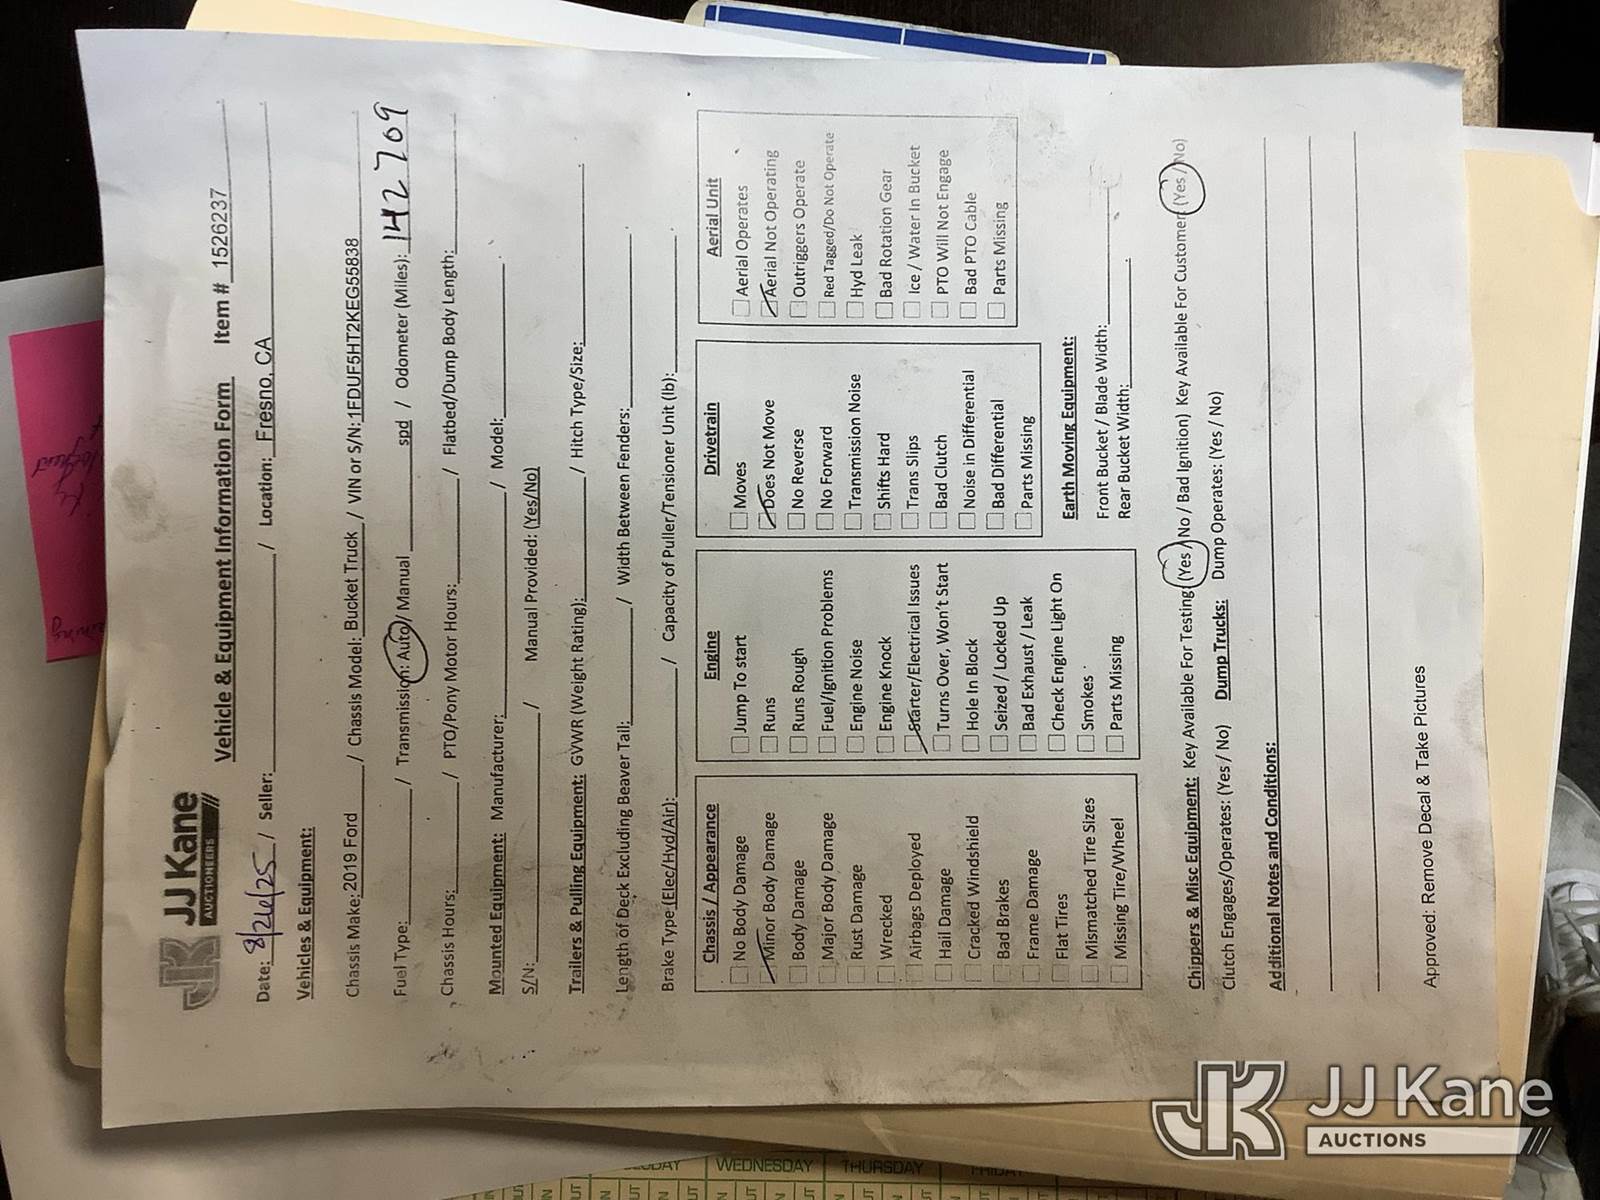 JJ Kane
AUCTIONEERS
Vehicle & Equipment Information Form Item # 1526237
Date: 8/26/25 / Seller: / Location: Fresno, CA
Vehicles & Equipment:
Chassis Make: 2019 Ford / Chassis Model: Bucket Truck / VIN or S/N: 1FDUF5HT2KEG55838
Fuel Type: / Transmission: Auto / Manual spd / Odometer (Miles): 142709
Chassis Hours: / PTO/Pony Motor Hours: / Flatbed/Dump Body Length:
Mounted Equipment: Manufacturer: / Model:
S/N: / Manual Provided: (Yes/No)
Trailers & Pulling Equipment: GVWR (Weight Rating): / Hitch Type/Size:
Length of Deck Excluding Beaver Tail: / Width Between Fenders:
Brake Type (Elec/Hyd/Air): / Capacity of Puller/Tensioner Unit (lb):
Chassis / Appearance
No Body Damage
Minor Body Damage
Body Damage
Major Body Damage
Rust Damage
Wrecked
Airbags Deployed
Hail Damage
Cracked Windshield
Bad Brakes
Frame Damage
Flat Tires
Mismatched Tire Sizes
Missing Tire/Wheel
Engine
Jump To start
Runs
Runs Rough
Fuel/Ignition Problems
Engine Noise
Engine Knock
Starter/Electrical Issues
Turns Over, Won't Start
Hole In Block
Seized / Locked Up
Bad Exhaust / Leak
Check Engine Light On
Smokes
Parts Missing
Drivetrain
Moves
Does Not Move
No Reverse
No Forward
Transmission Noise
Shifts Hard
Trans Slips
Bad Clutch
Noise in Differential
Bad Differential
Parts Missing
Aerial Unit
Aerial Operates
Aerial Not Operating
Outriggers Operate
Red Tagged/Do Not Operate
Hyd Leak
Bad Rotation Gear
Ice / Water In Bucket
PTO Will Not Engage
Bad PTO Cable
Parts Missing
Earth Moving Equipment:
Front Bucket / Blade Width:
Rear Bucket Width:
Chippers & Misc Equipment: Key Available For Testing (Yes / No / Bad Ignition) Key Available For Customer (Yes / No)
Clutch Engages/Operates: (Yes / No) Dump Trucks: Dump Operates: (Yes / No)
Additional Notes and Conditions:
Approved: Remove Decal & Take Pictures
WEDNESDAY
THURSDAY
JJ Kane
AUCTIONS